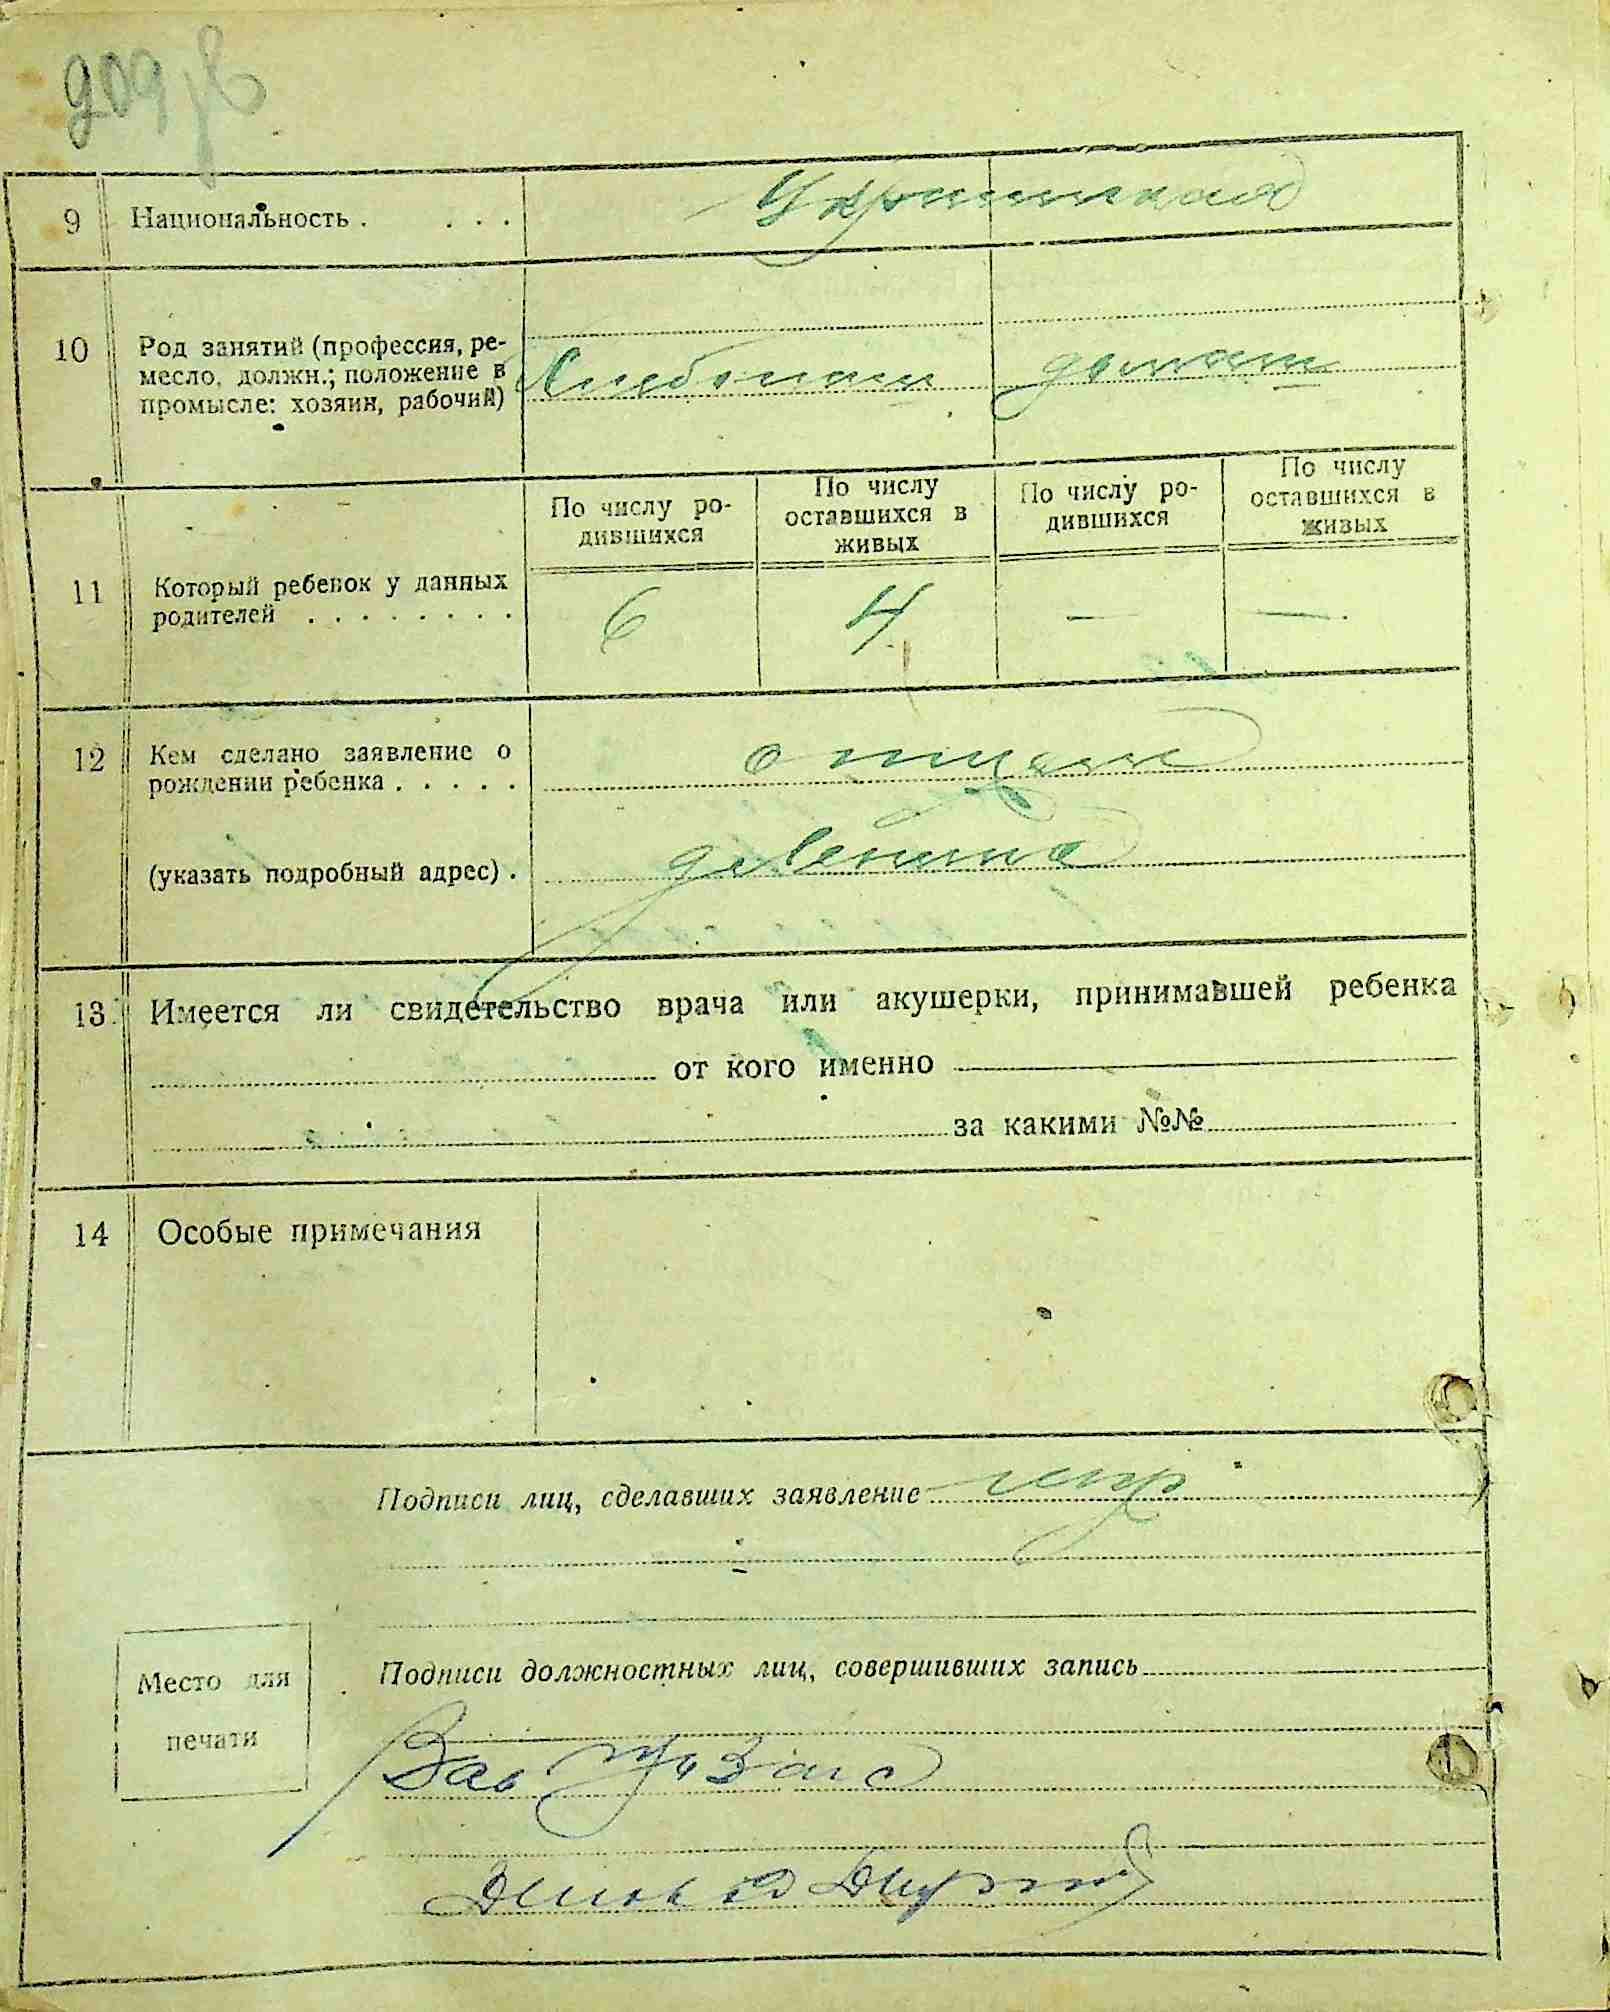 209
9 Национальность . . . .
Украинская
10 Род занятий (профессия, ре-
месло, должн.; положение в
промысле: хозяин, рабочий)
Хлебопаш домаш
По числу ро-
дившихся
По числу
оставшихся в
живых
По числу ро-
дившихся
По числу
оставшихся в
живых
11 Который ребенок у данных
родителей . . . . . . . .
6 4 — —
12 Кем сделано заявление о
рождении ребенка . . . . .
отцом
(указать подробный адрес) .
13 Имеется ли свидетельство врача или акушерки, принимавшей ребенка
от кого именно
за какими №№
14 Особые примечания
Подписи лиц, сделавших заявление
Подписи должностных лиц, совершивших запись
Место для
печати
Зав